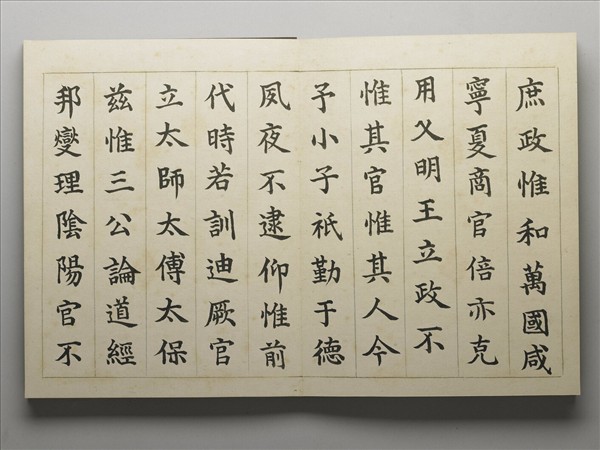 庶政惟和萬國咸
寧夏商官倍亦克
用乂明王立政不
惟其官惟其人今
予小子祇勤于德
夙夜不逮仰惟前
代時若訓迪厥官
立太師太傅太保
茲惟三公論道經
邦燮理陰陽官不